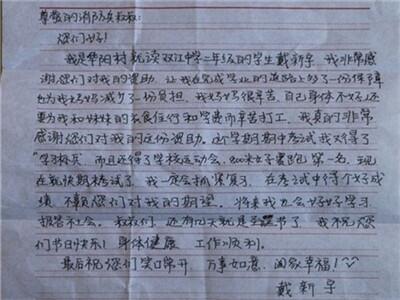 尊敬的消防兵叔叔:
您们好!
我是华阳村就读双江中学二年级的学生戴新宇,我非常感
谢您们对我的资助,让我在完成学业的道路上多了一份保障
也为我妈妈减少了一份负担,我妈妈很辛苦,自己身体不好,还
要为我和妹妹的衣食住行和学费而辛苦打工,我真的非常
感谢您们对我的这份资助。这学期期中考试我又得了
“学习标兵”,而且还得了学校运动会,800米女子赛跑第一名,现
在就快期末考试了,我一定会抓紧复习,在考试中得个好成
绩,不辜负您们对我的期望。将来我也会好好学习,
报答社会。叔叔们,还有几天就是节了,我祝您
们节日快乐!身体健康,工作顺利。
最后祝您们笑口常开,万事如意,阖家幸福!
戴新宇